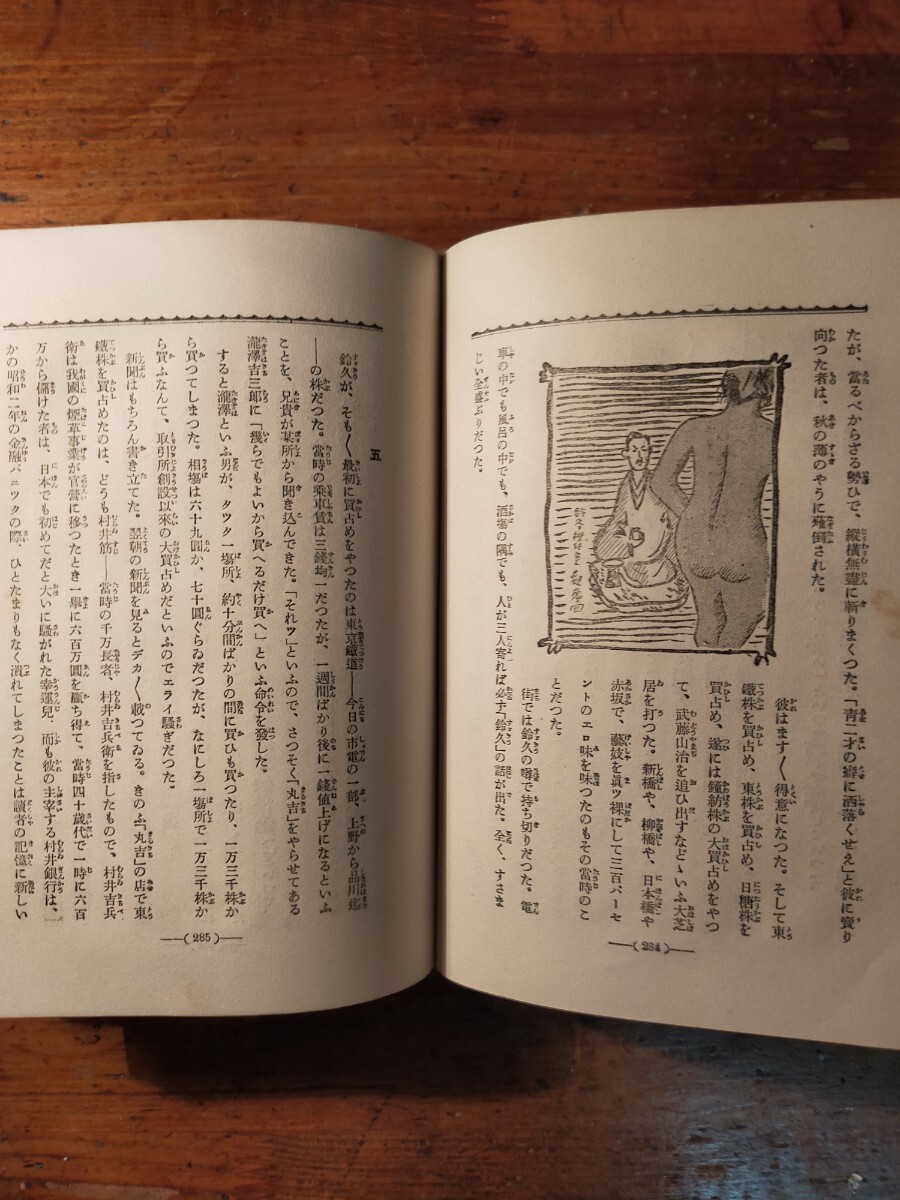 たが、當るべからざる勢ひで、縱橫無盡に斬りまくつた。「靑二才の癖に洒落くせえ」と彼に賣り
向つた者は、秋の薄のやうに薙倒された。
彼はます〱得意になつた。そして東
鐵株を買占め、東株を買占め、日糖株を
買占め、遂には鐘紡株の大買占めをやつ
て、武藤山治を追ひ出すなどゝいふ大芝
居を打つた。新橋や、柳橋や、日本橋や
赤坂で、藝妓を眞ッ裸にして三百パーセ
ントのエロ味を味つたのもその當時のこ
とだつた。
街では鈴久の噂で持ち切りだつた。電
車の中でも風呂の中でも、酒場の隅でも、人が三人寄れば必ず「鈴久」の話が出た。全く、すさま
じい全盛ぶりだつた。
―(284)―
五
鈴久が、そも〱最初に買占めをやつたのは東京鐵道――今日の市電の一部、上野から品川迄
――の株だつた。當時の乘車賃は三錢均一だつたが、一週間ばかり後に一錢値上げになるといふ
ことを、兄貴が某所から聞き込んできた。「それッ」といふので、さつそく「丸吉」をやらせてある
瀧澤吉三郎に「幾らでもよいから買へるだけ買へ」といふ命令を發した。
すると瀧澤といふ男が、タツタ一場所、約十分間ばかりの間に買ひも買つたり、一万三千株か
ら買つてしまつた。相場は六十九圓か、七十圓ぐらゐだつたが、なにしろ一場所で一万三千株か
ら買ふなんて、取引所創設以來の大買占めだといふのでエライ騷ぎだつた。
新聞はもちろん書き立てた。翌朝の新聞を見るとデカ〱載つてゐる。きのふ「丸吉」の店で東
鐵株を買占めたのは、どうも村井筋――當時の千万長者、村井吉兵衞を指したもので、村井吉兵
衞は我國の煙草事業が官營に移つたとき一擧に六百万圓を贏ち得て、當時四十歲代で一時に六百
万から儲けた者は、日本でも初めてだと大いに騷がれた幸運兒、而も彼の主宰する村井銀行は、
かの昭和二年の金融パニックの際、ひとたまりもなく潰れてしまつたことは讀者の記憶に新しい
―(285)―